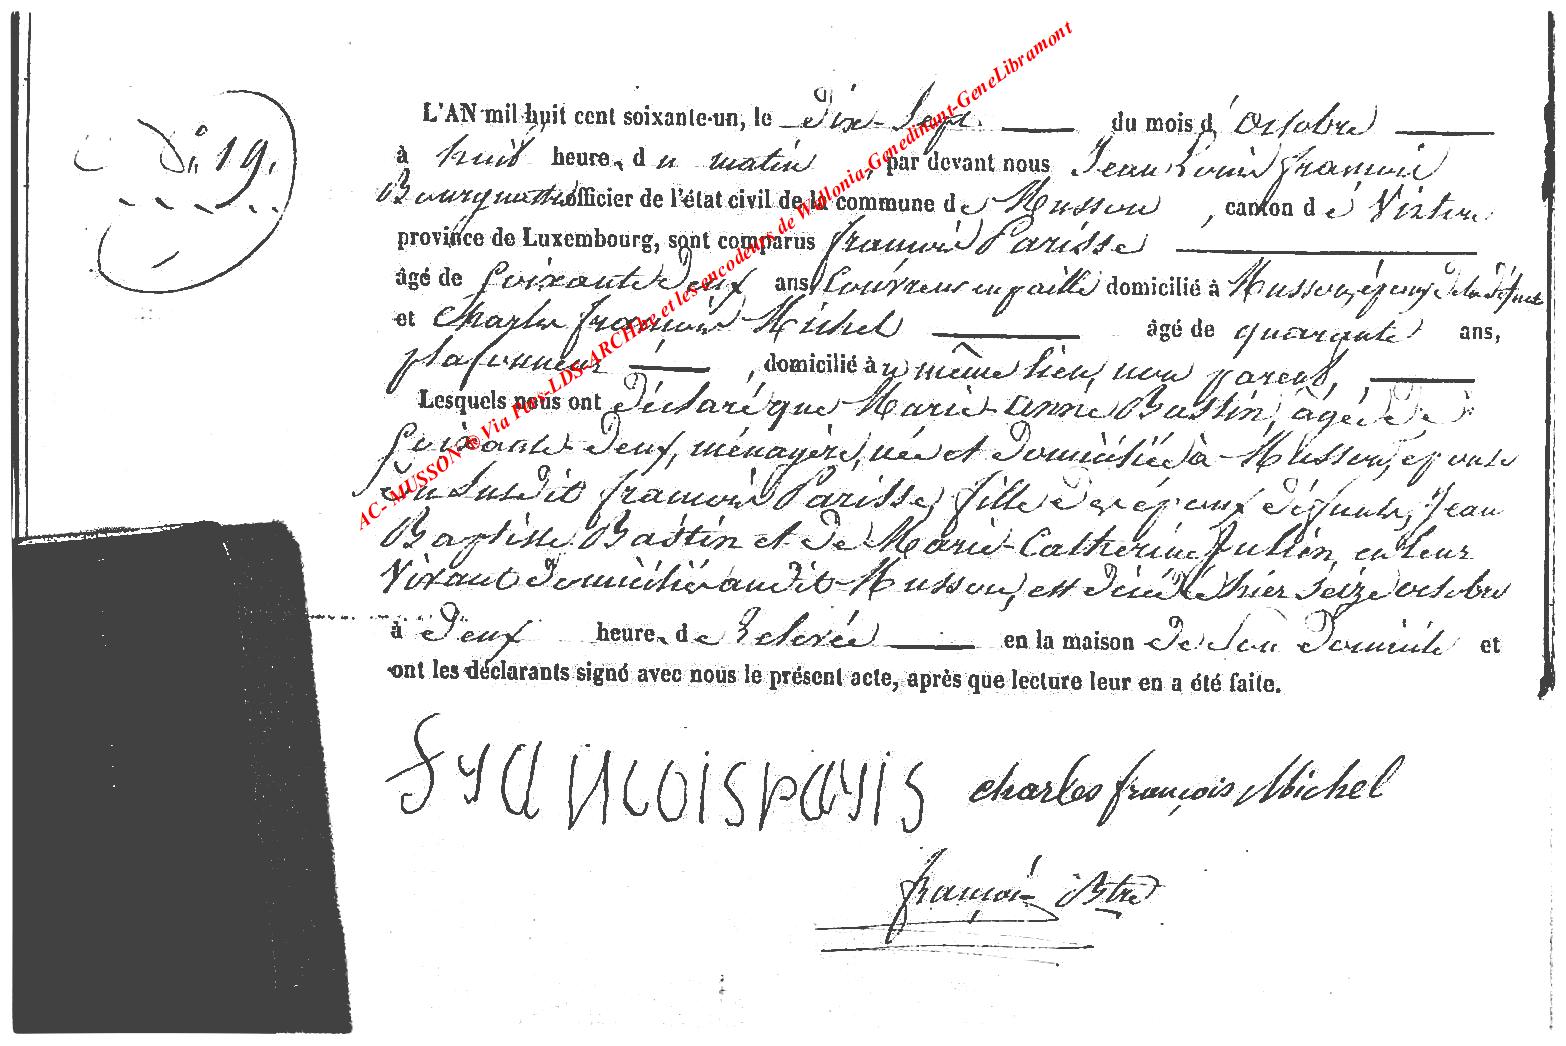 N° 19.
L'AN mil huit cent soixante-un, le Dix-Sept du mois d'octobre
à huit heures du matin, par devant nous Jean Louis françois
Bourguotte officier de l'état civil de la commune de Musson, canton de Virton
province de Luxembourg, sont comparus françois Parisse
âgé de Soixante Deux ans, Couvreur en paille domicilié à Musson, époux de la défunte
et Charles françois Michel âgé de quarante ans,
plafonneur, domicilié au même lieu, non parent,
Lesquels nous ont Déclaré que Marie-Anne Bastin, âgée De
Soixante-Deux, ménagère, née et Domiciliée à Musson, épouse
Du Susdit françois Parisse, fille Des époux défunts, Jean
Baptiste Bastin et De Marie-Catherine Julien, en leur
Vivant Domiciliés audit Musson, est décédée hier Seize octobre
à Deux heures de Relevée en la maison De Son Domicile et
ont les déclarants signé avec nous le présent acte, après que lecture leur en a été faite.
francois paris charles françois Michel
françois Btte
AC- MUSSON @ Via Fam-LDS-ARCH.be et les encodeurs de Wallonia-Genedinant-GeneLibramont